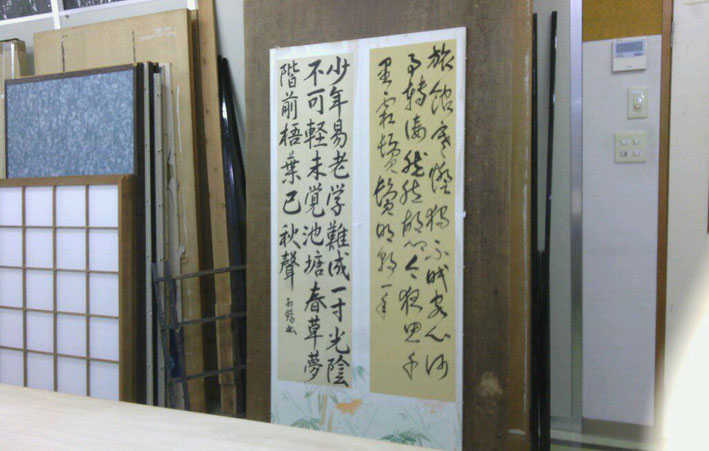 旅館寒燈獨不眠客心何
事轉凄然故鄉今夜思千
里霜鬢明朝一年
少年易老学難成一寸光陰
不可軽未覚池塘春草夢
階前梧葉已秋聲